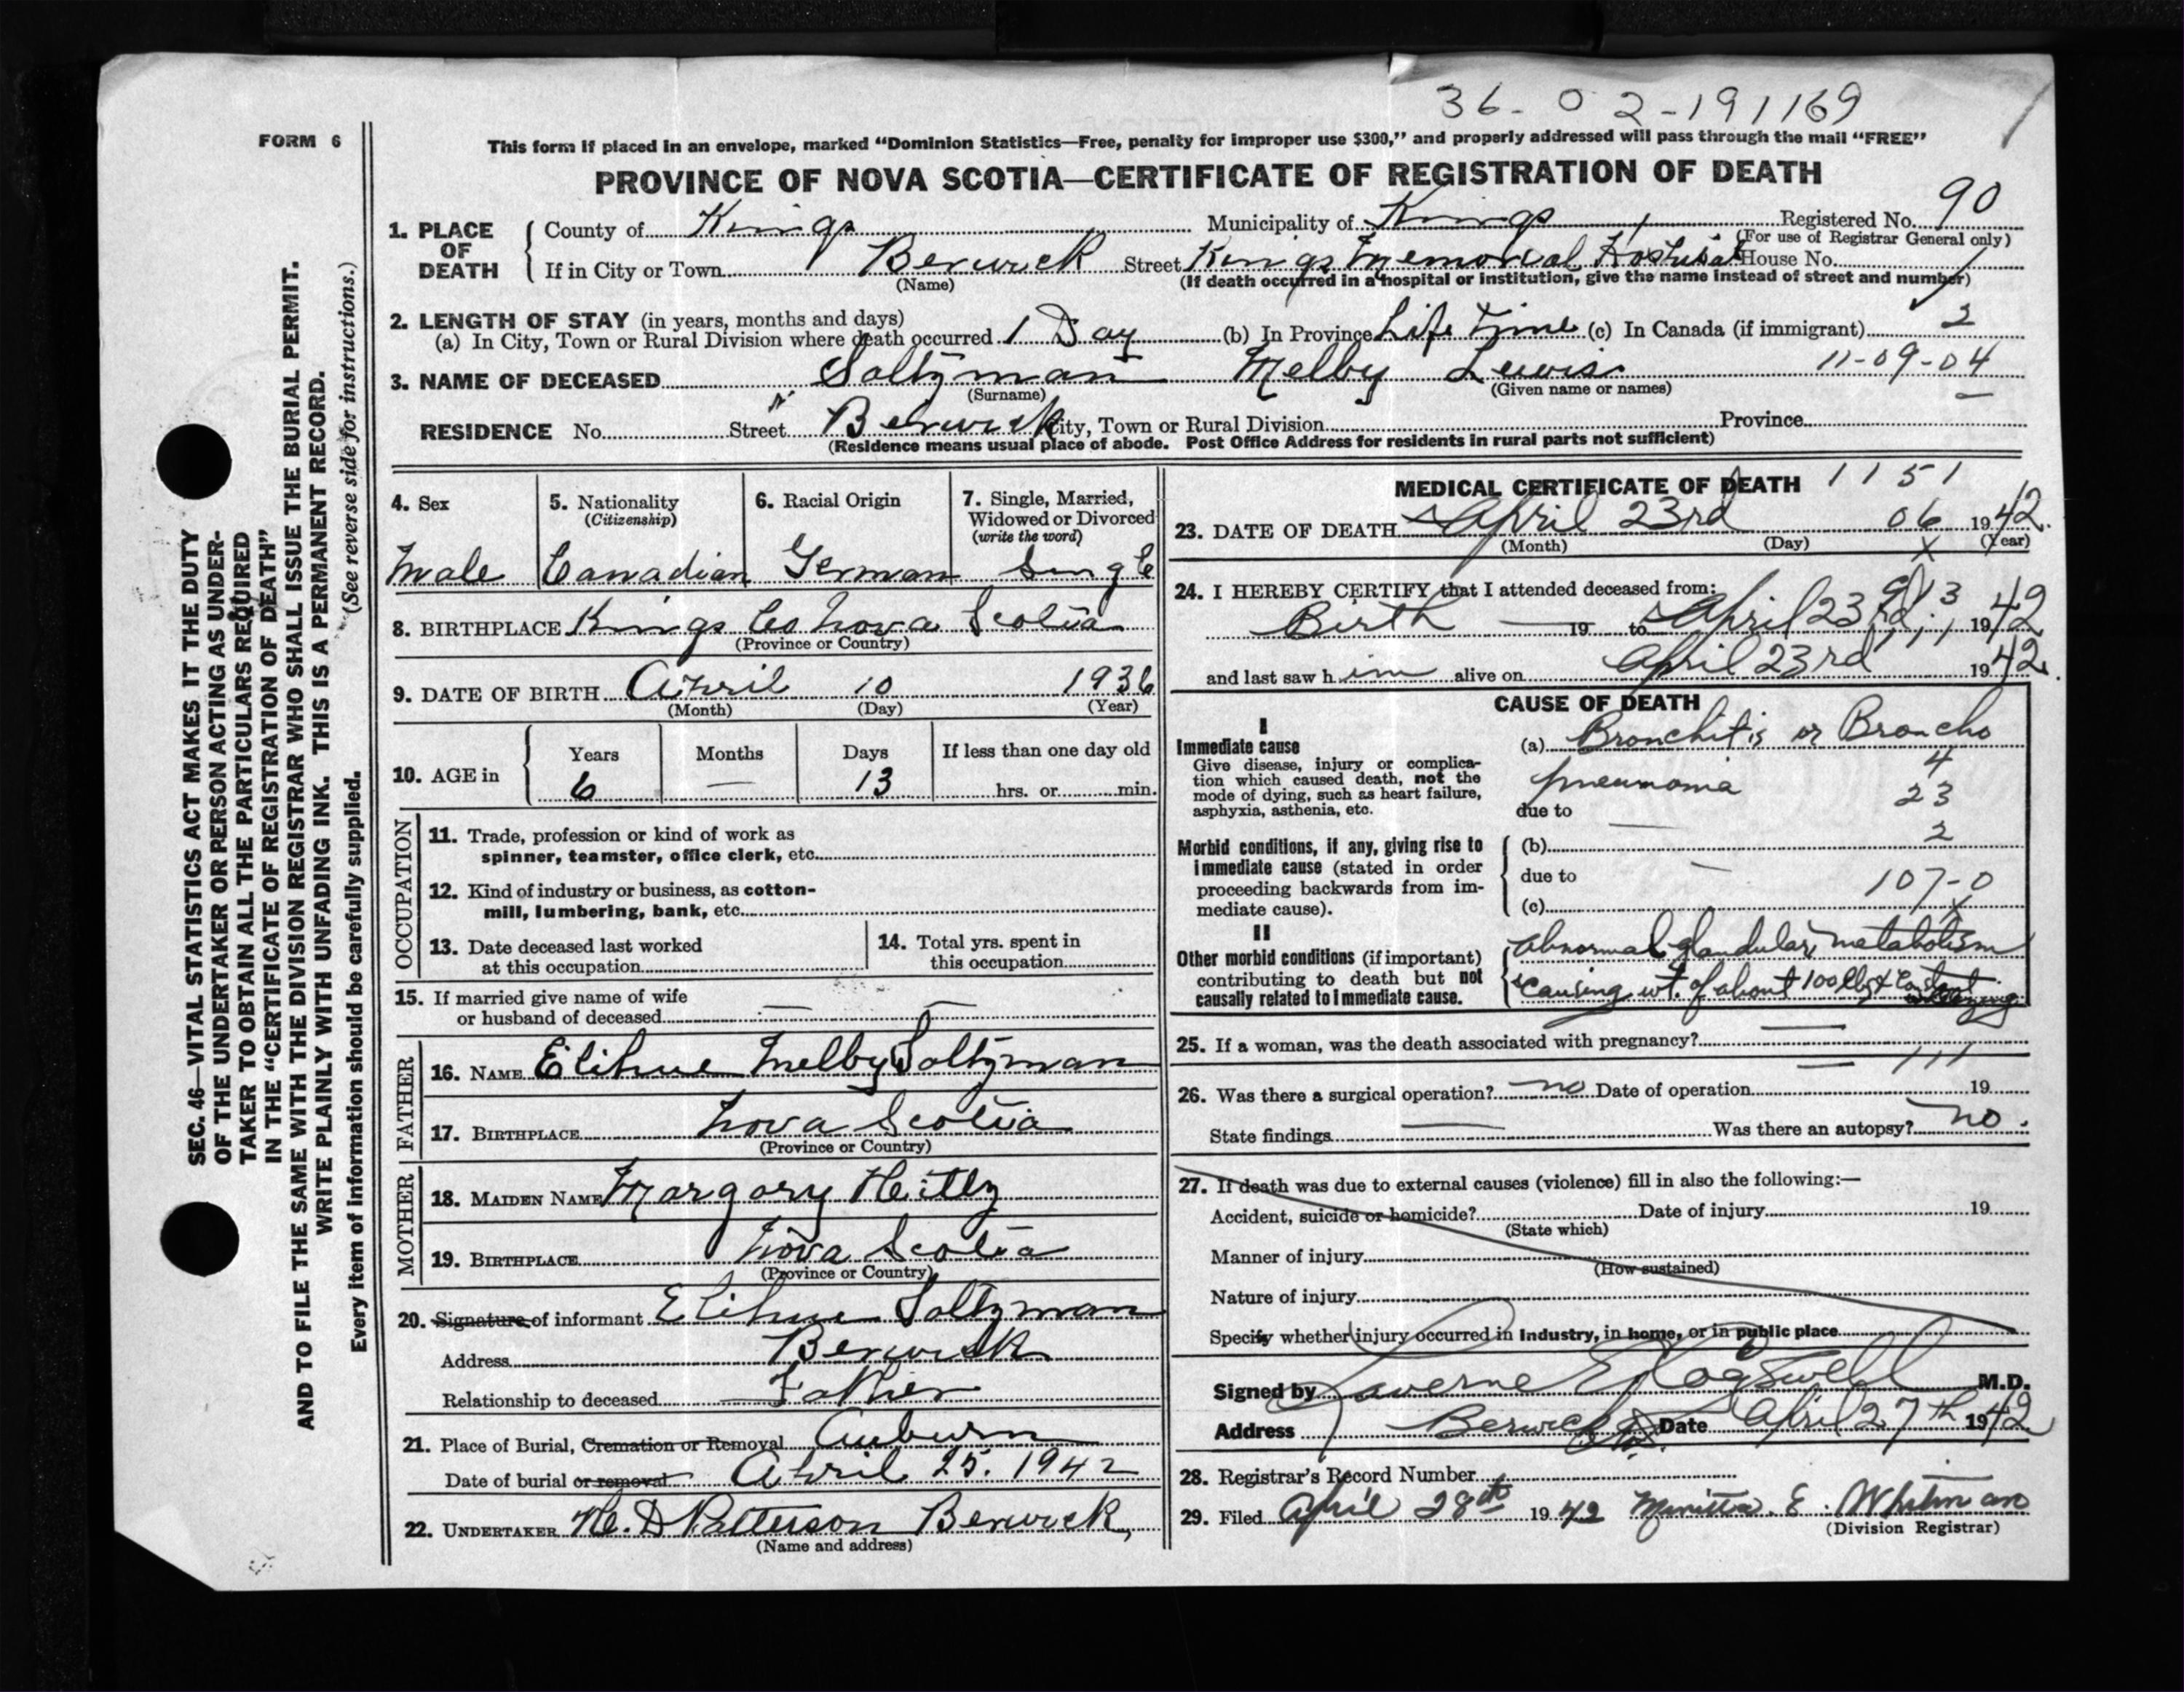 36-02-191169
FORM 6
This form if placed in an envelope, marked "Dominion Statistics—Free, penalty for improper use $300," and properly addressed will pass through the mail "FREE"
PROVINCE OF NOVA SCOTIA—CERTIFICATE OF REGISTRATION OF DEATH
1. PLACE OF DEATH County of Kings Municipality of Kings Registered No. 90
(For use of Registrar General only)
If in City or Town Berwick Street Kings Memorial Hospital House No.
(Name) (If death occurred in a hospital or institution, give the name instead of street and number)
2. LENGTH OF STAY (in years, months and days)
(a) In City, Town or Rural Division where death occurred 1 Day (b) In Province Life Time (c) In Canada (if immigrant) 2
3. NAME OF DECEASED Saltzman Melby Lewis 11-09-04
(Surname) (Given name or names)
RESIDENCE No. Street Berwick City, Town or Rural Division Province
(Residence means usual place of abode. Post Office Address for residents in rural parts not sufficient)
SEC. 46—VITAL STATISTICS ACT MAKES IT THE DUTY
OF THE UNDERTAKER OR PERSON ACTING AS UNDER-
TAKER TO OBTAIN ALL THE PARTICULARS REQUIRED
IN THE "CERTIFICATE OF REGISTRATION OF DEATH"
AND TO FILE THE SAME WITH THE DIVISION REGISTRAR WHO SHALL ISSUE THE BURIAL PERMIT.
WRITE PLAINLY WITH UNFADING INK. THIS IS A PERMANENT RECORD.
Every item of information should be carefully supplied. (See reverse side for instructions.)
4. Sex 5. Nationality 6. Racial Origin 7. Single, Married,
(Citizenship) Widowed or Divorced
(write the word)
Male Canadian German Single
8. BIRTHPLACE Kings Co Nova Scotia
(Province or Country)
9. DATE OF BIRTH April 10 1936
(Month) (Day) (Year)
10. AGE in Years Months Days If less than one day old
6 — 13 hrs. or min.
OCCUPATION
11. Trade, profession or kind of work as
spinner, teamster, office clerk, etc.
12. Kind of industry or business, as cotton-
mill, lumbering, bank, etc.
13. Date deceased last worked
at this occupation
14. Total yrs. spent in
this occupation
15. If married give name of wife
or husband of deceased — —
FATHER
16. NAME Elihue Melby Saltzman
17. BIRTHPLACE Nova Scotia
(Province or Country)
MOTHER
18. MAIDEN NAME Margory
19. BIRTHPLACE Nova Scotia
(Province or Country)
20. Signature of informant Elihue Saltzman
Address Berwick
Relationship to deceased Father
21. Place of Burial, Cremation or Removal Auburn
Date of burial or removal April 25. 1942
22. UNDERTAKER H. D Patterson Berwick,
(Name and address)
MEDICAL CERTIFICATE OF DEATH 1151
23. DATE OF DEATH April 23rd 06 1942.
(Month) (Day) (Year)
24. I HEREBY CERTIFY that I attended deceased from:
Birth — 19 to April 23rd 1942
and last saw him alive on April 23rd 1942.
CAUSE OF DEATH
I
Immediate cause
Give disease, injury or complica-
tion which caused death, not the
mode of dying, such as heart failure,
asphyxia, asthenia, etc.
(a) Bronchitis or Broncho
4
pneumonia 23
due to —
Morbid conditions, if any, giving rise to
immediate cause (stated in order
proceeding backwards from im-
mediate cause).
(b) 2
due to —
107-0
(c) x
II
Other morbid conditions (if important)
contributing to death but not
causally related to immediate cause.
abnormal glandular metabolism
causing wt. of about 100 lbs & constant
25. If a woman, was the death associated with pregnancy? —
111
26. Was there a surgical operation? no Date of operation — 19
State findings — Was there an autopsy? no.
27. If death was due to external causes (violence) fill in also the following:—
Accident, suicide or homicide? Date of injury 19
(State which)
Manner of injury
(How sustained)
Nature of injury
Specify whether injury occurred in Industry, in home, or in public place
Signed by Laverne E Cogswell M.D.
Address Berwick N.S. Date April 27th 1942
28. Registrar's Record Number
29. Filed April 28th 1942 E. Whitman
(Division Registrar)